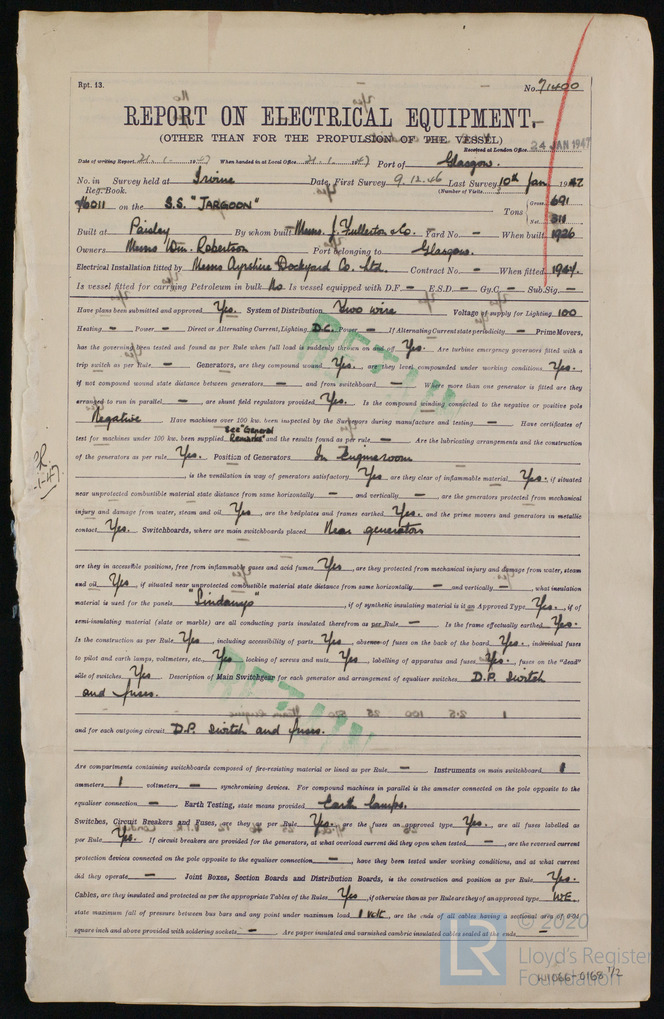 Rpt. 13.
No. 71400
REPORT ON ELECTRICAL EQUIPMENT.
(OTHER THAN FOR THE PROPULSION OF THE VESSEL)
Received at London Office 24 JAN 1947
Date of writing Report 21. 1. 1947 When handed in at Local Office 21. 1. 1947 Port of Glasgow.
No. in Survey held at Irvine Date, First Survey 9.12.46 Last Survey 10th Jan 1947
Reg. Book. (Number of Visits
76011 on the S.S. "JARGOON" Tons Gross 691
Net 311
Built at Paisley By whom built Messrs. J. Fullerton & Co. Yard No. - When built 1926
Owners Messrs Wm. Robertson Port belonging to Glasgow.
Electrical Installation fitted by Messrs Ayrshire Dockyard Co. Ltd. Contract No. - When fitted 1947.
Is vessel fitted for carrying Petroleum in bulk No. Is vessel equipped with D.F. - E.S.D. - Gy.C. - Sub.Sig. -
Have plans been submitted and approved Yes. System of Distribution Two wire Voltage of supply for Lighting 100
Heating - Power - Direct or Alternating Current, Lighting D.C. Power - If Alternating Current state periodicity - Prime Movers,
has the governing been tested and found as per Rule when full load is suddenly thrown on and off Yes. Are turbine emergency governors fitted with a
trip switch as per Rule - Generators, are they compound wound Yes. are they level compounded under working conditions Yes.
if not compound wound state distance between generators - and from switchboard - Where more than one generator is fitted are they
arranged to run in parallel - , are shunt field regulators provided Yes. Is the compound winding connected to the negative or positive pole
Negative Have machines over 100 kw. been inspected by the Surveyors during manufacture and testing - Have certificates of
test for machines under 100 kw. been supplied See "General Remarks" and the results found as per rule - Are the lubricating arrangements and the construction
of the generators as per rule Yes. Position of Generators In Engineroom
, is the ventilation in way of generators satisfactory Yes are they clear of inflammable material Yes. if situated
near unprotected combustible material state distance from same horizontally - and vertically - , are the generators protected from mechanical
injury and damage from water, steam and oil Yes, are the bedplates and frames earthed Yes. and the prime movers and generators in metallic
contact Yes. Switchboards, where are main switchboards placed Near generators
are they in accessible positions, free from inflammable gases and acid fumes Yes, are they protected from mechanical injury and damage from water, steam
and oil Yes, if situated near unprotected combustible material state distance from same horizontally - and vertically - , what insulation
material is used for the panels "Sindanyo" , if of synthetic insulating material is it an Approved Type Yes. if of
semi-insulating material (slate or marble) are all conducting parts insulated therefrom as per Rule - Is the frame effectually earthed Yes.
Is the construction as per Rule Yes, including accessibility of parts Yes. absence of fuses on the back of the board Yes. individual fuses
to pilot and earth lamps, voltmeters, etc. Yes locking of screws and nuts Yes, labelling of apparatus and fuses Yes. fuses on the "dead"
side of switches Yes Description of Main Switchgear for each generator and arrangement of equaliser switches D.P. switch
and fuses.
and for each outgoing circuit D.P. switch and fuses.
Are compartments containing switchboards composed of fire-resisting material or lined as per Rule - Instruments on main switchboard 1
ammeters 1 voltmeters - synchronising devices. For compound machines in parallel is the ammeter connected on the pole opposite to the
equaliser connection - Earth Testing, state means provided Earth lamps.
Switches, Circuit Breakers and Fuses, are they as per Rule Yes. are the fuses an approved type Yes. are all fuses labelled as
per Rule Yes. If circuit breakers are provided for the generators, at what overload current did they open when tested - , are the reversed current
protection devices connected on the pole opposite to the equaliser connection - , have they been tested under working conditions, and at what current
did they operate - Joint Boxes, Section Boards and Distribution Boards, is the construction and position as per Rule Yes.
Cables, are they insulated and protected as per the appropriate Tables of the Rules Yes, if otherwise than as per Rule are they of an approved type WE.
state maximum fall of pressure between bus bars and any point under maximum load 1 Volt, are the ends of all cables having a sectional area of 0.04
square inch and above provided with soldering sockets - Are paper insulated and varnished cambric insulated cables sealed at the ends -
RETAIN
RETAIN
© 2020
LR
Lloyd's Register
Foundation
W1066-0168 1/2